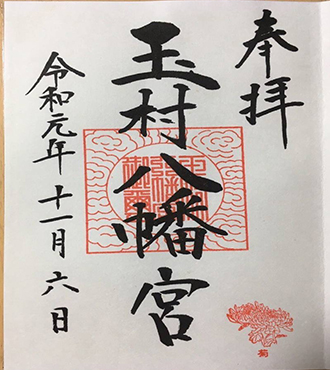 奉拝
玉村八幡宮
令和元年十一月六日
菊